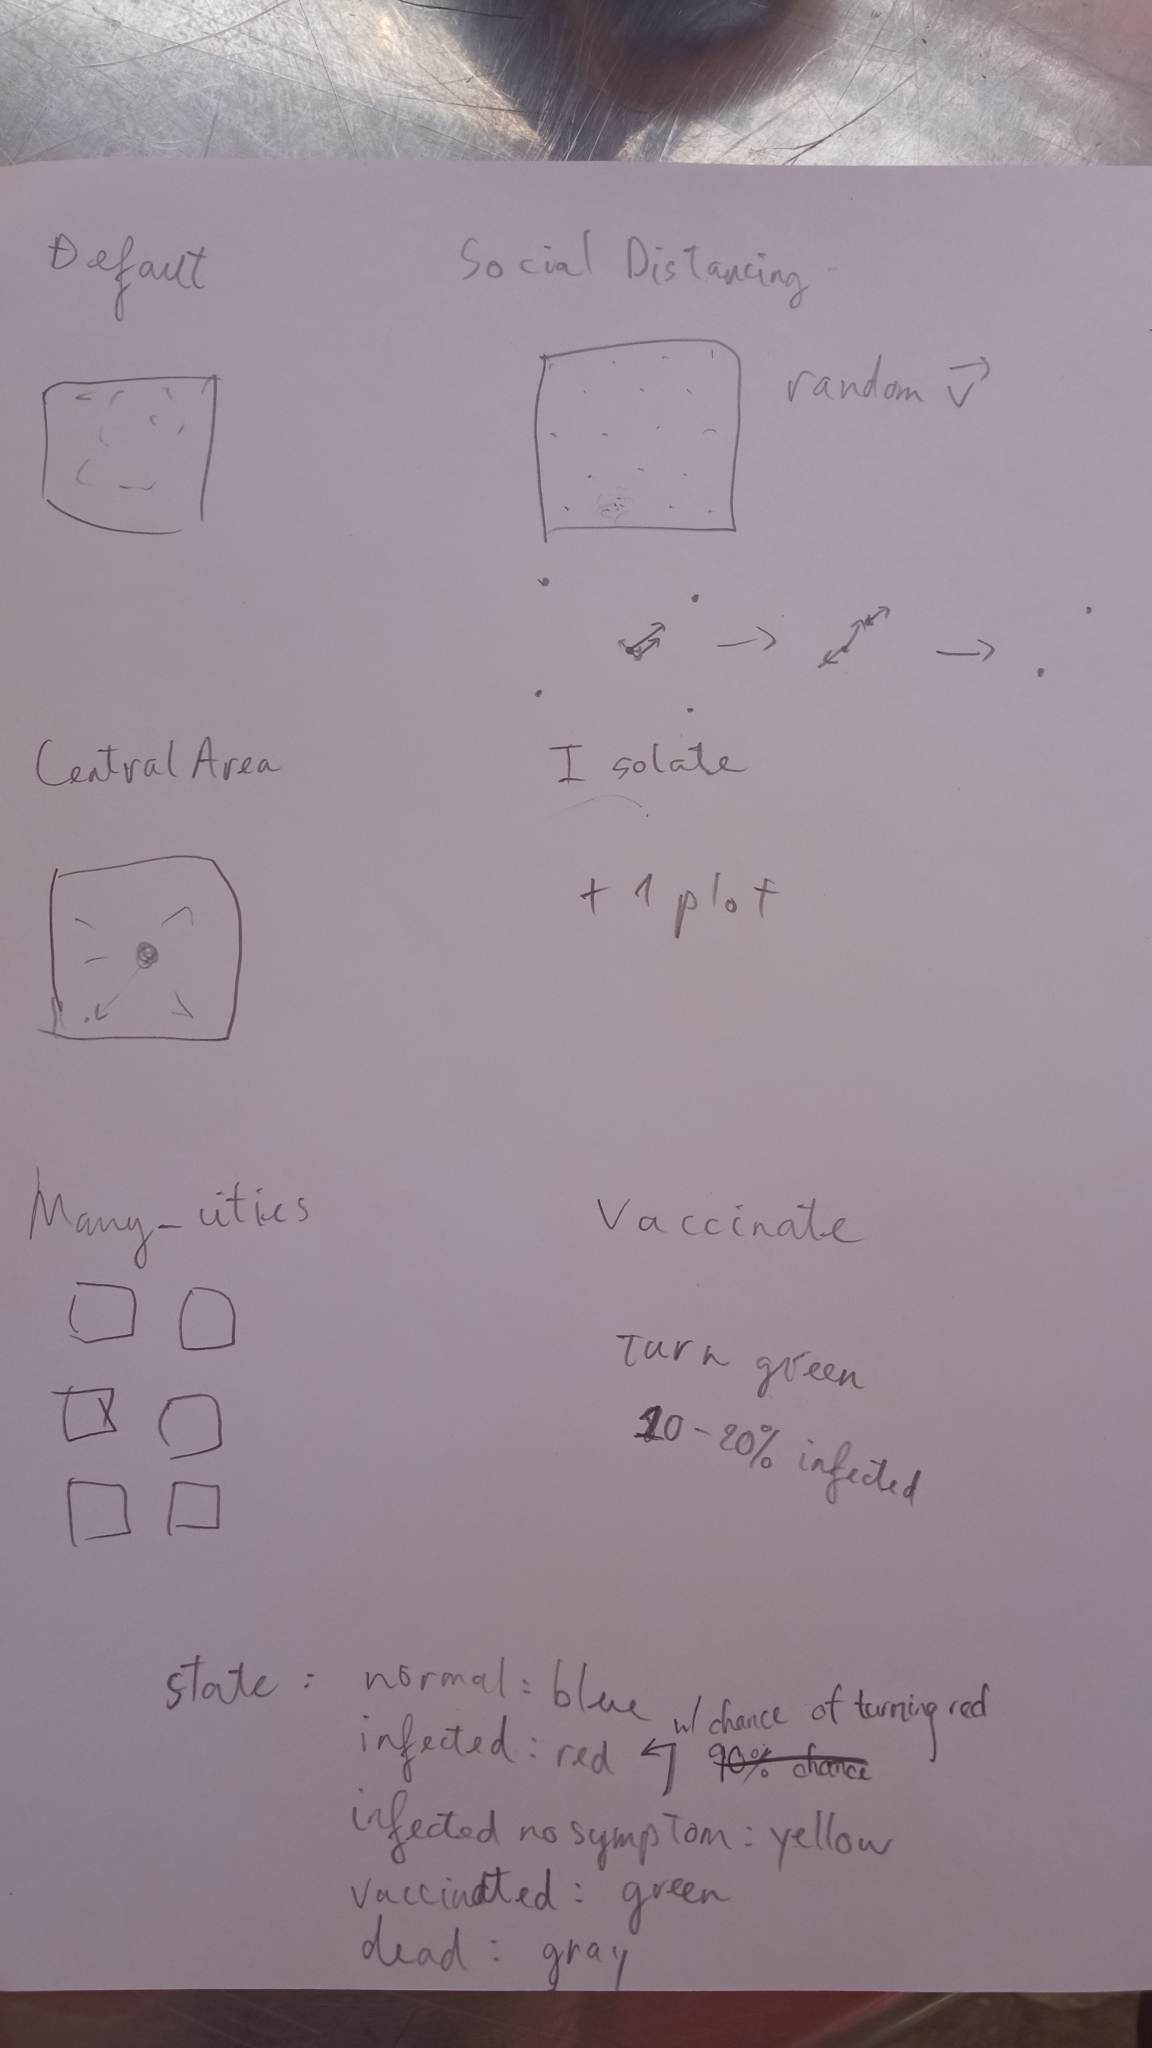 Defaut
Social Distancing
random v
Central Area
Isolate
+ 1 plot
Many_cities
Vaccinate
Turn green
10-20% infected
state : normal: blue
w/ chance of turning red
infected: red
90% chance
infected no symptom: yellow
vaccinated: green
dead: gray